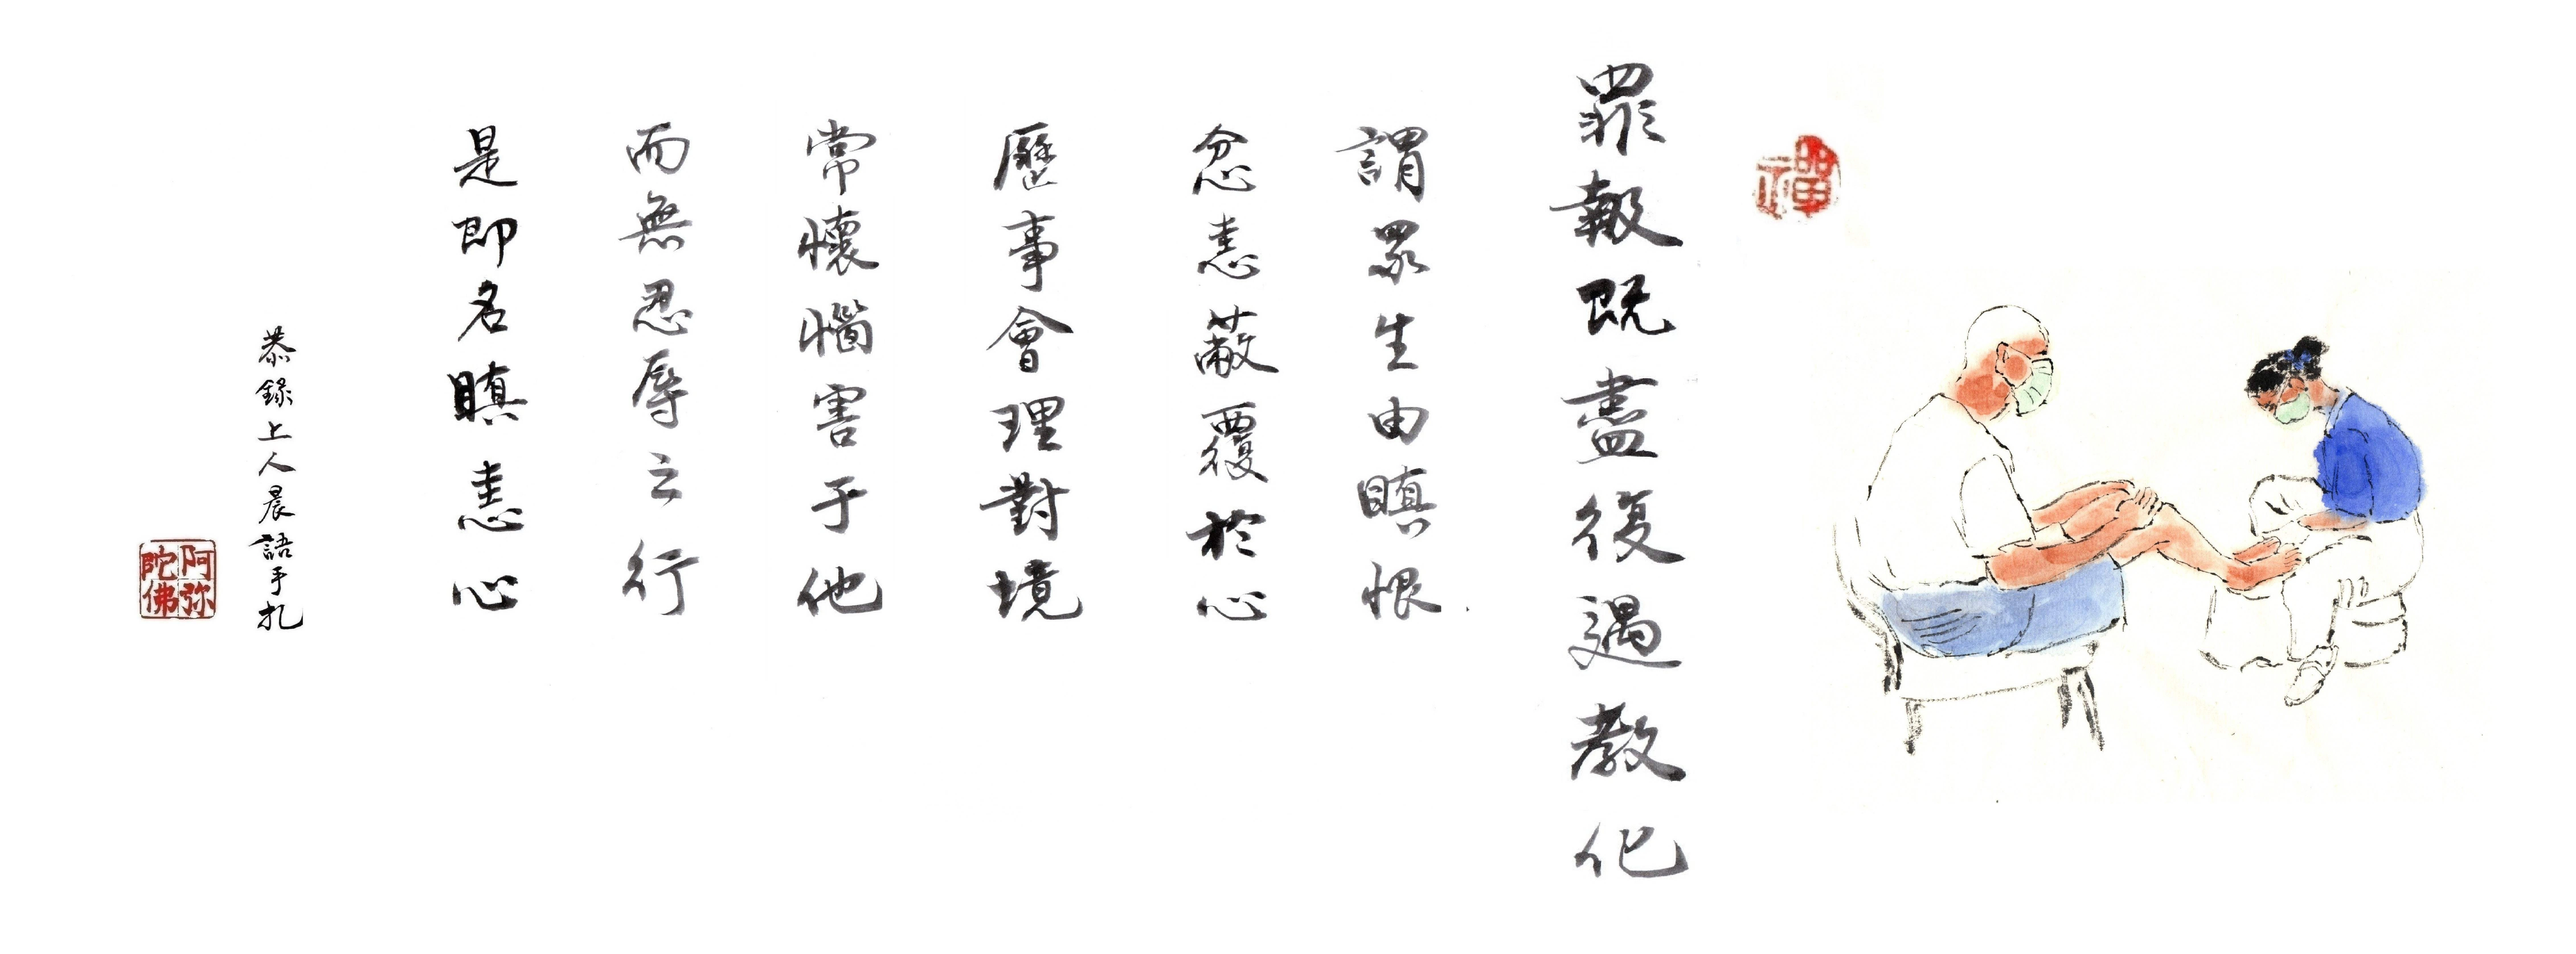 禪
罪報既盡復遇教化
謂眾生由瞋恨
忿恚蔽覆於心
歷事會理對境
常懷惱害于他
而無忍辱之行
是即名瞋恚心
恭錄上人晨語手扎
阿弥陀佛